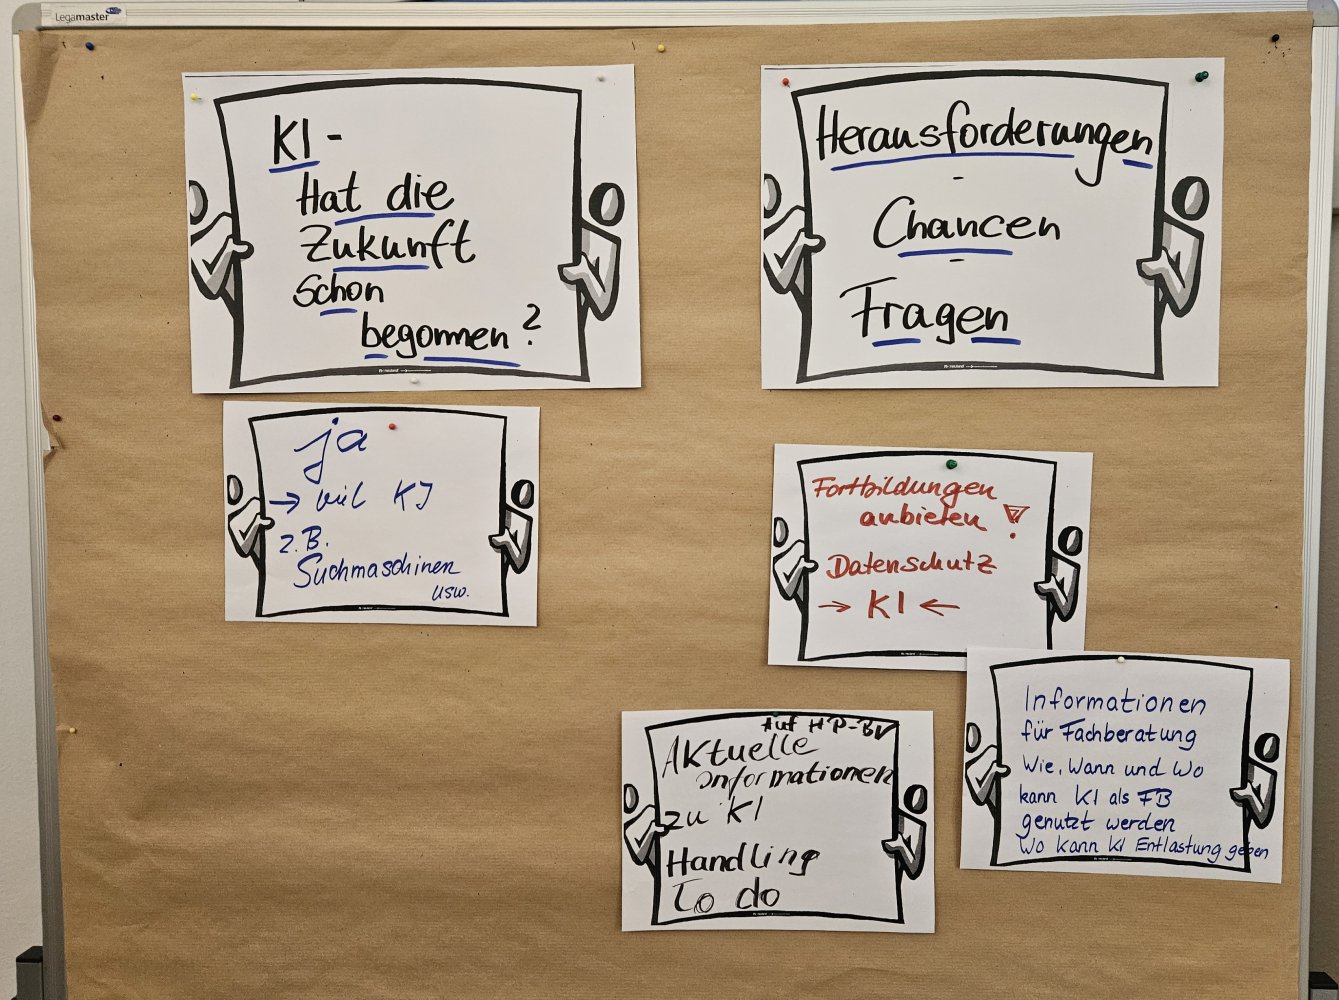 Legamaster
KI -
Hat die
Zukunft
Schon
begonnen?
Herausforderungen
-
Chancen
-
Fragen
ja
→ viel KI
z.B.
Suchmaschinen
usw.
Fortbildungen
anbieten !
Datenschutz
→ KI ←
Auf HP-BV
Aktuelle
Informationen
zu KI
Handling
To do
Informationen
für Fachberatung
Wie, Wann und Wo
kann KI als FB
genutzt werden
Wo kann KI Entlastung geben